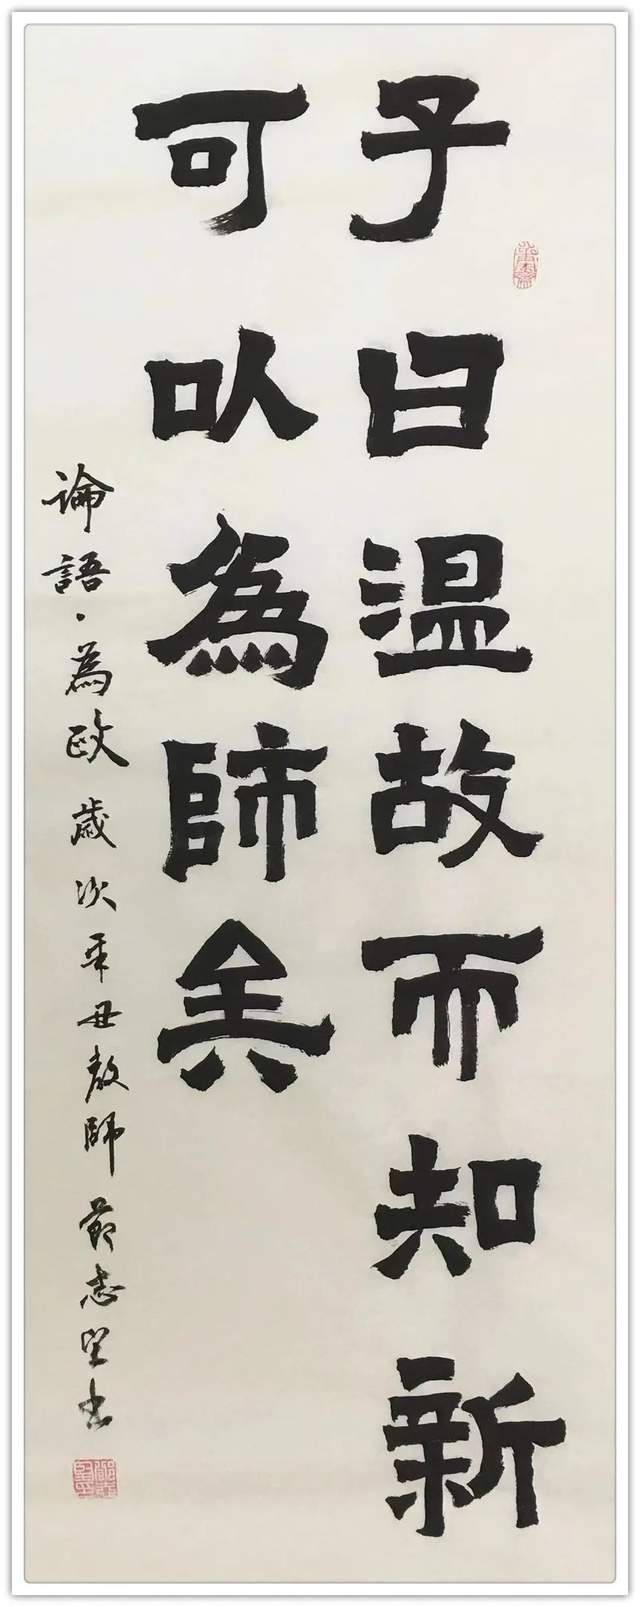 子曰温故而知新
可以為師矣
論語·為政歲次辛丑教師節志堅書